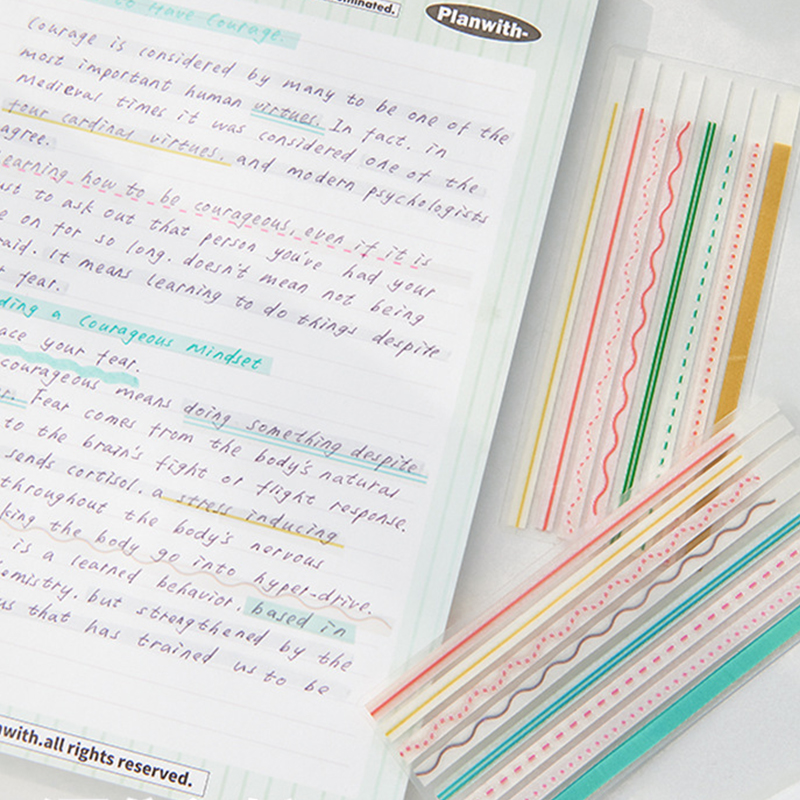 minated.
Planwith-
to Have Courage.
Courage is considered by many to be one of the
most important human virtues. In fact. in
Medieval times it was considered one of the
four cardinal virtues. and modern psychologists
agree.
earning how to be courageous, even if it is
ust to ask out that person you've had your
e on for so long. doesn't mean not being
raid. It means learning to do things despite
r fear.
ding a Courageous Mindset
ace your fear.
courageous means doing something despite
r. Fear comes from the body's natural
to the brain's fight or flight response.
sends cortisol. a stress inducing
throughout the body's nervous
king the body go into hyper-drive.
is a learned behavior. based in
emistry. but strengthened by the
us that has trained us to be
nwith.all rights reserved.